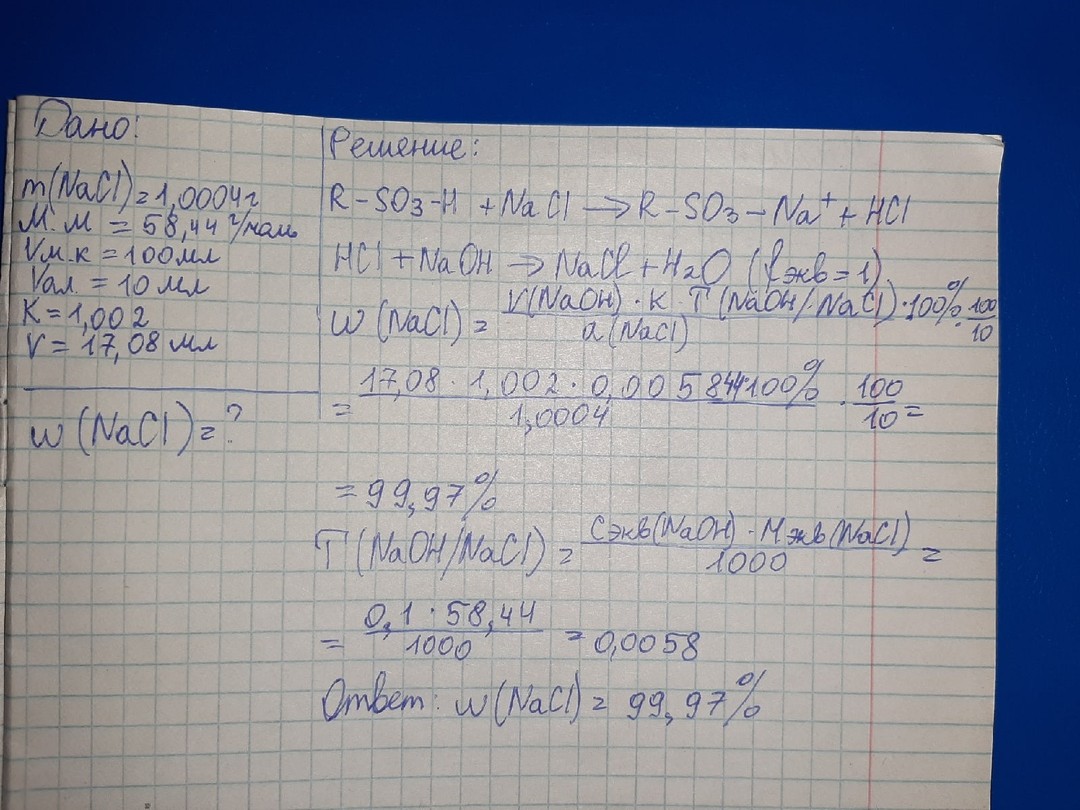 Дано:
m(NaCl)=1,0004г
М.м = 58,44 г/моль
Vм.к = 100мл
Vал = 10 мл
K = 1,002
V = 17,08 мл
w (NaCl) = ?
Решение:
R-SO3-H + NaCl → R-SO3-Na⁺ + HCl
HCl + NaOH → NaCl + H2O (fэкв = 1)
w (NaCl) = V(NaOH) · K · T (NaOH/NaCl) · 100% / a (NaCl) · 100/10
= 17,08 · 1,002 · 0,005844·100% / 1,0004 · 100/10 =
= 99,97%
T (NaOH/NaCl) = Cэкв(NaOH) · Mэкв(NaCl) / 1000 =
= 0,1 · 58,44 / 1000 = 0,0058
Ответ: w (NaCl) = 99,97%